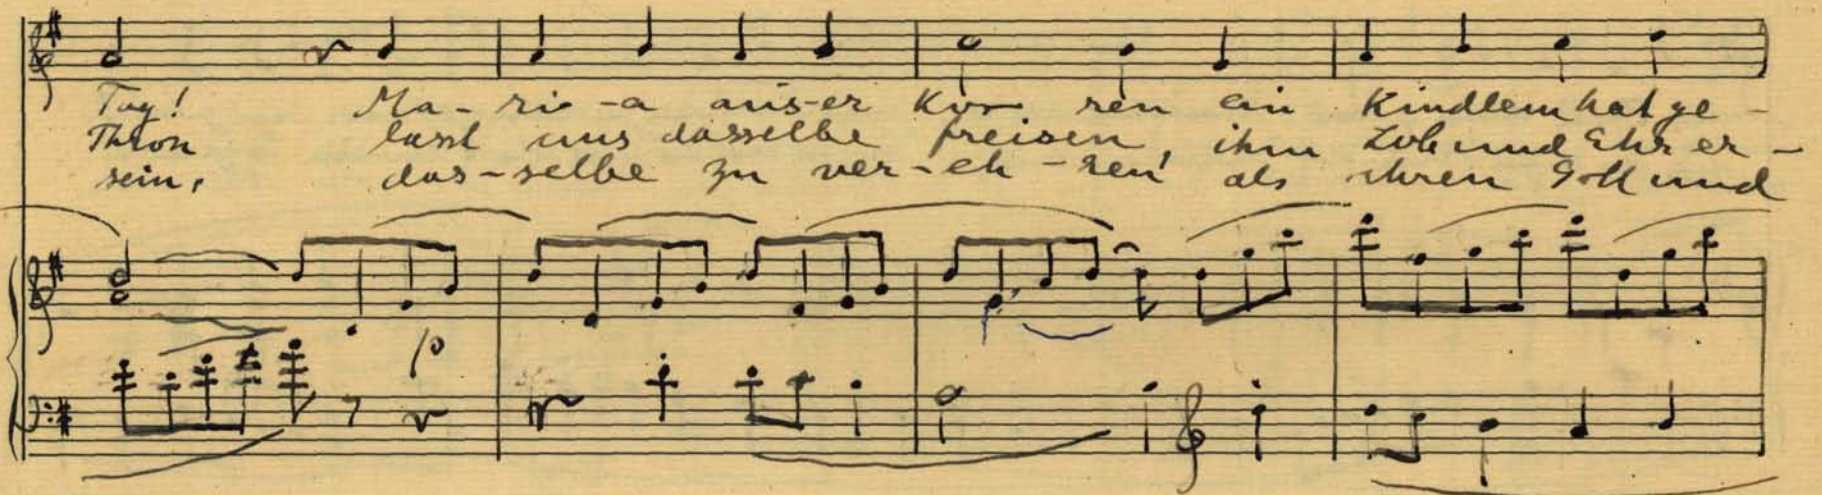 Tag! Ma-ri-a aus-er Kor ren ein Kindlein hat ge-
Thron lasst uns dasselbe preisen, ihm Lob und Ehr er-
sein, das-selbe zu ver-eh-ren! als ihren Gott und
p